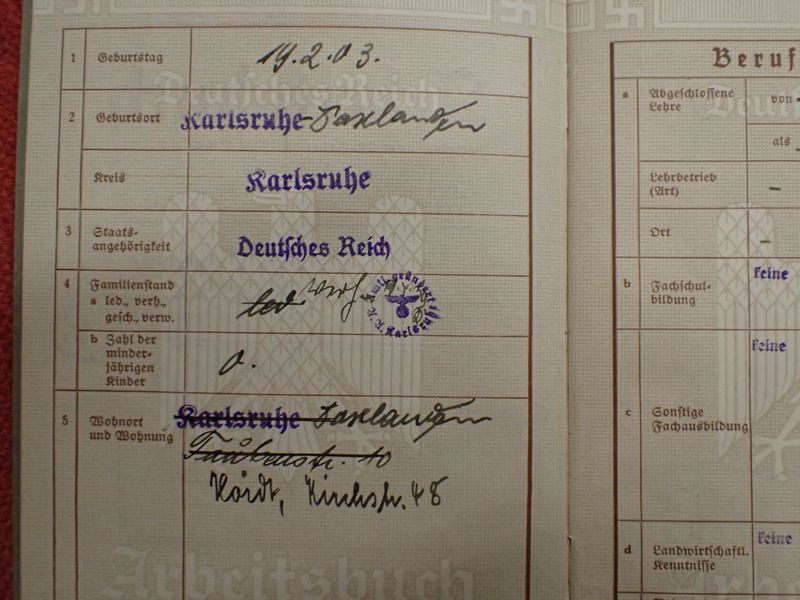 1 Geburtstag 19.2.03.
2 Geburtsort Karlsruhe-Daxlanden
Kreis Karlsruhe
3 Staats-
angehörigkeit Deutsches Reich
4 Familienstand
a led., verh.,
gesch., verw. led verh.
Amtl. geändert
A. A. Karlsruhe
b Zahl der
minder-
jährigen
Kinder 0.
5 Wohnort
und Wohnung Karlsruhe Daxlanden
Taubenstr. 10
Hördt, Kirchstr. 48
Deutsches Reich
Arbeitsbuch
Beruf
a Abgeschlossene
Lehre
von -
als
Lehrbetrieb
(Art) -
Ort -
b Fachschul-
bildung keine
keine
c Sonstige
Fachausbildung
d Landwirtschaftl.
Kenntnisse keine